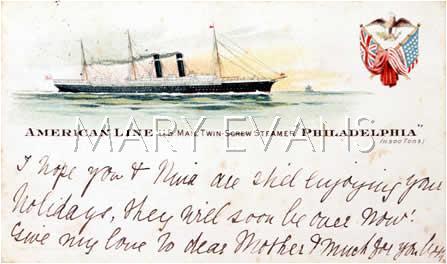 MARY EVANS
AMERICAN LINE U.S. MAIL TWIN-SCREW STEAMER "PHILADELPHIA"
(11500 TONS)
I hope you & Nina are still enjoying your
holidays, they will soon be over now!
Give my love to dear Mother & much for you both